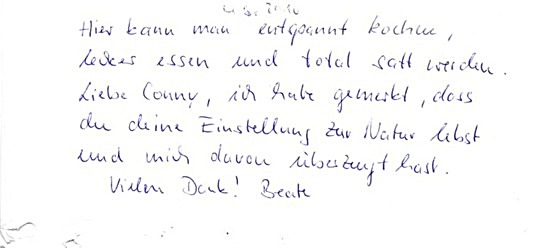 Hier kann man entspannt kochen,
lecker essen und total satt werden.
Liebe Conny, ich habe gemerkt, dass
du deine Einstellung zur Natur lebst
und mich davon überzeugt hast.
Vielen Dank! Beate